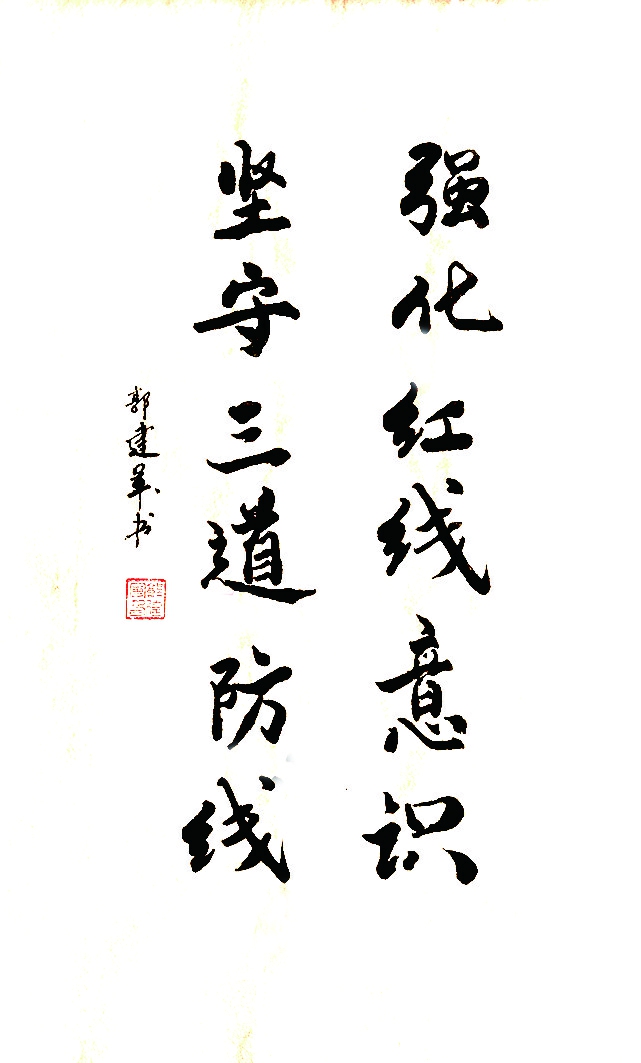 强化红线意识
坚守三道防线
郭建军书